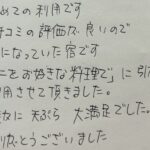 めての利用です
コミの評価が良いので
になっていた宿です
をお好きな料理で」に引
用させて頂きました。
に天ぷら 大満足でした。
りがとうございました